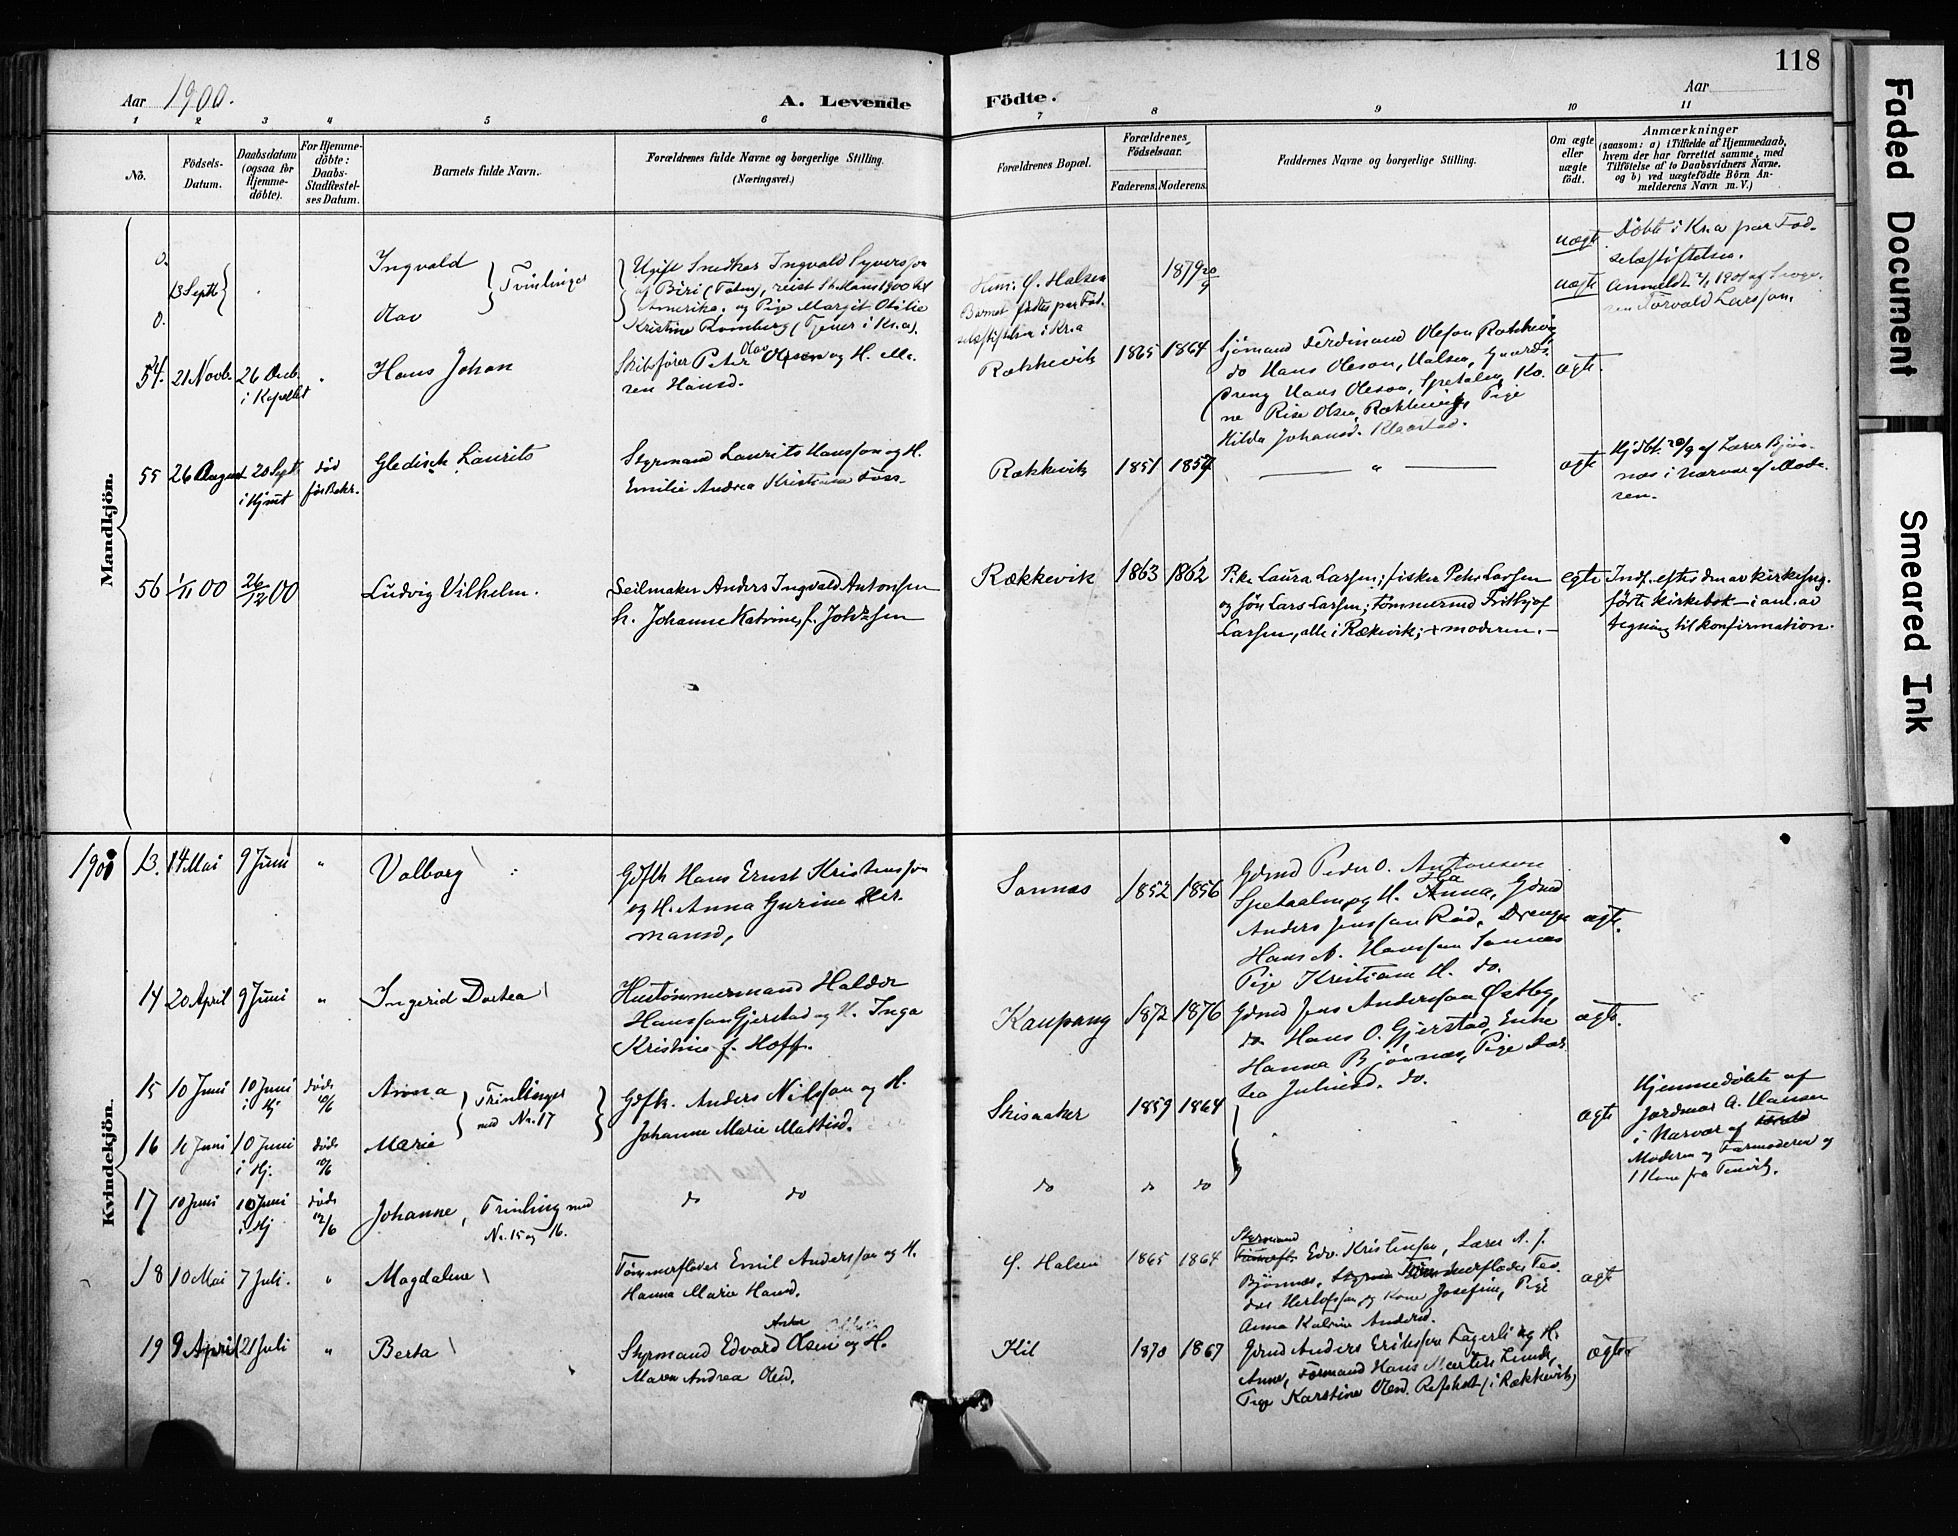 118
Aar 1900.
A. Levende Födte.
Aar
1 2 3 4 5 6 7 8 9 10 11
No.
Födsels-Datum.
Daabsdatum (ogsaa för Hjemme-döbte).
For Hjemme-döbte: Daabs-Stadfæstel-ses Datum.
Barnets fulde Navn.
Forældrenes fulde Navne og borgerlige Stilling. (Næringsvei.)
Forældrenes Bopæl.
Forældrenes Födselsaar.
Faderens. Moderens.
Faddernes Navne og borgerlige Stilling.
Om ægte eller uægte födt.
Anmærkninger
(saasom: a) i Tilfælde af Hjemmedaab,
hvem der har forrettet samme, med
Tilföielse af to Daabsvidners Navne.
og b) ved uægtefödte Börn An-
melderens Navn m. V.)
Mandkjön.
0.
13 Septb
0.
Ingvald
Olav
Tvillinger
Ugift Snedker Ingvald Syversson
af Biri (Toten), reist St Hans 1900 til
Amerika, og Pige Margit Otilie
Kristine Romberg (Tjener i Kr.a).
Hun: Ø. Halsen
Barnet fødtes paa Fød-
selsstiftelsen i Kr.a
1879 20/9
uægte
uægte
Döbte i Kr.a paa Fød-
selsstiftelsen.
Anmeldt
Torvald Larsson.
54. 21 Novb. 26 Decb. i Kapellet "
Hans Johan
Skibsfører Peter Olav Olsen og H. Ma-
ren Hansd.
Rækkevik 1865 1864
Sjømand Ferdinand Oleson Rækkevig
do Hans Oleson, Halsen, Gaards-
dreng Hans Oleson, Spetalen, Ko-
ne Rise Olsen, Rækkevig, Pige
Hilda Johansd. Klaastad.
ægte.
55 26 August 20 Sept. i Hjmt
død før Bekr.
Gledisch Laurits
Styrmand Laurits Hansson og H.
Emilie Andrea Kristiane Foss.
Rækkevik 1851 1857 "
ægte
Hjdbt. 20/9 af Lærer Bjøn-
nes i Nærvær af Mode-
ren.
56 1/11 00 26/12 00
Ludvig Vilhelm.
Seilmaker Anders Ingvald Antonsen
h. Johanne Katrine, f. Johnsen
Rækkevik 1863 1862
Pike Laura Larsen; fisker Peter Larsen
og sjøm Lars Larsen; tømmermd Frithjof
Larsen, alle i Rækevik; + moderen.
egte
Indf. efter den av kirkesng.
førte kirkebok – i anl. av
tegning til konfirmation.
Kvindekjön.
1901
13. 14 Mai 9 Juni "
Valborg
Gdfbr Hans Ernst Kristensson
og H. Anna Gurine Her-
mansd,
Sannes 1852 1856
Gdmd Peder O. Antonsen
Spetaalen og H. Anna, Gdmd
Anders Jensson Rød, Dreng
Hans A. Hansson Sannes
Pige Kristiane H. do.
ægte.
14 20 April 9 Juni "
Ingerid Dortea
Hustømmermand Haldor
Hansson Gjerstad og H. Inga
Kristine f. Hoff.
Kaupang 1872 1876
Gdmd Jens Andersson Østby,
do Hans O. Gjerstad, Enke
Hanna Bjønnes, Pige Dor-
tea Juliusd. do.
ægte.
15 10 Juni 10 Juni i Hj døde 10/6
Anna
Trinlinger
med No. 17
Gdfbr. Anders Nilsson og H.
Johanne Marie Mattisd.
Skisaaker 1859 1864
ægte
Hjemmedøbte af
Jordmor A. Hansen
i Nærvær af
Moderen og Farmoderen og
1 Kone fra Tenvik.
16 10 Juni 10 Juni i Hj. døde 10/6
Marie
17 10 Juni 10 Juni i Hj døde 12/6
Johanne, Trinling med
No. 15 og 16.
do do
do do do
18 10 Mai 7 Juli. "
Magdalene
Tømmerfløder Emil Andersson og H.
Hanna Marie Hansd.
Ø. Halsen 1865 1864
Styrmand
Edv. Kristensen, Lærer A. J.
Bjønnes, Tømmerfløder Teo-
dor Herlofsson og Kone Josefine, Pige
Anna Katrine Andersd.
ægte
19 9 April 21 Juli "
Berta
Styrmand Edvard Anker Olsen og H.
Maren Andrea Olsd.
Kil 1870 1867
Gdmd Anders Eriksson Fagerli og H.
Anne, Formand Hans Martin Lunde,
Pige Karstine Olsd. Refsholt (i Rækkevik)
ægte
Faded Document
Smeared Ink